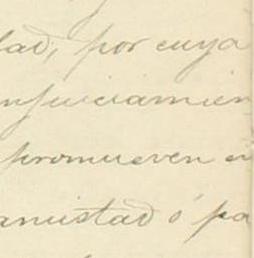 dad, por cuya
njuiciamien
promueven e
amistad ó pa